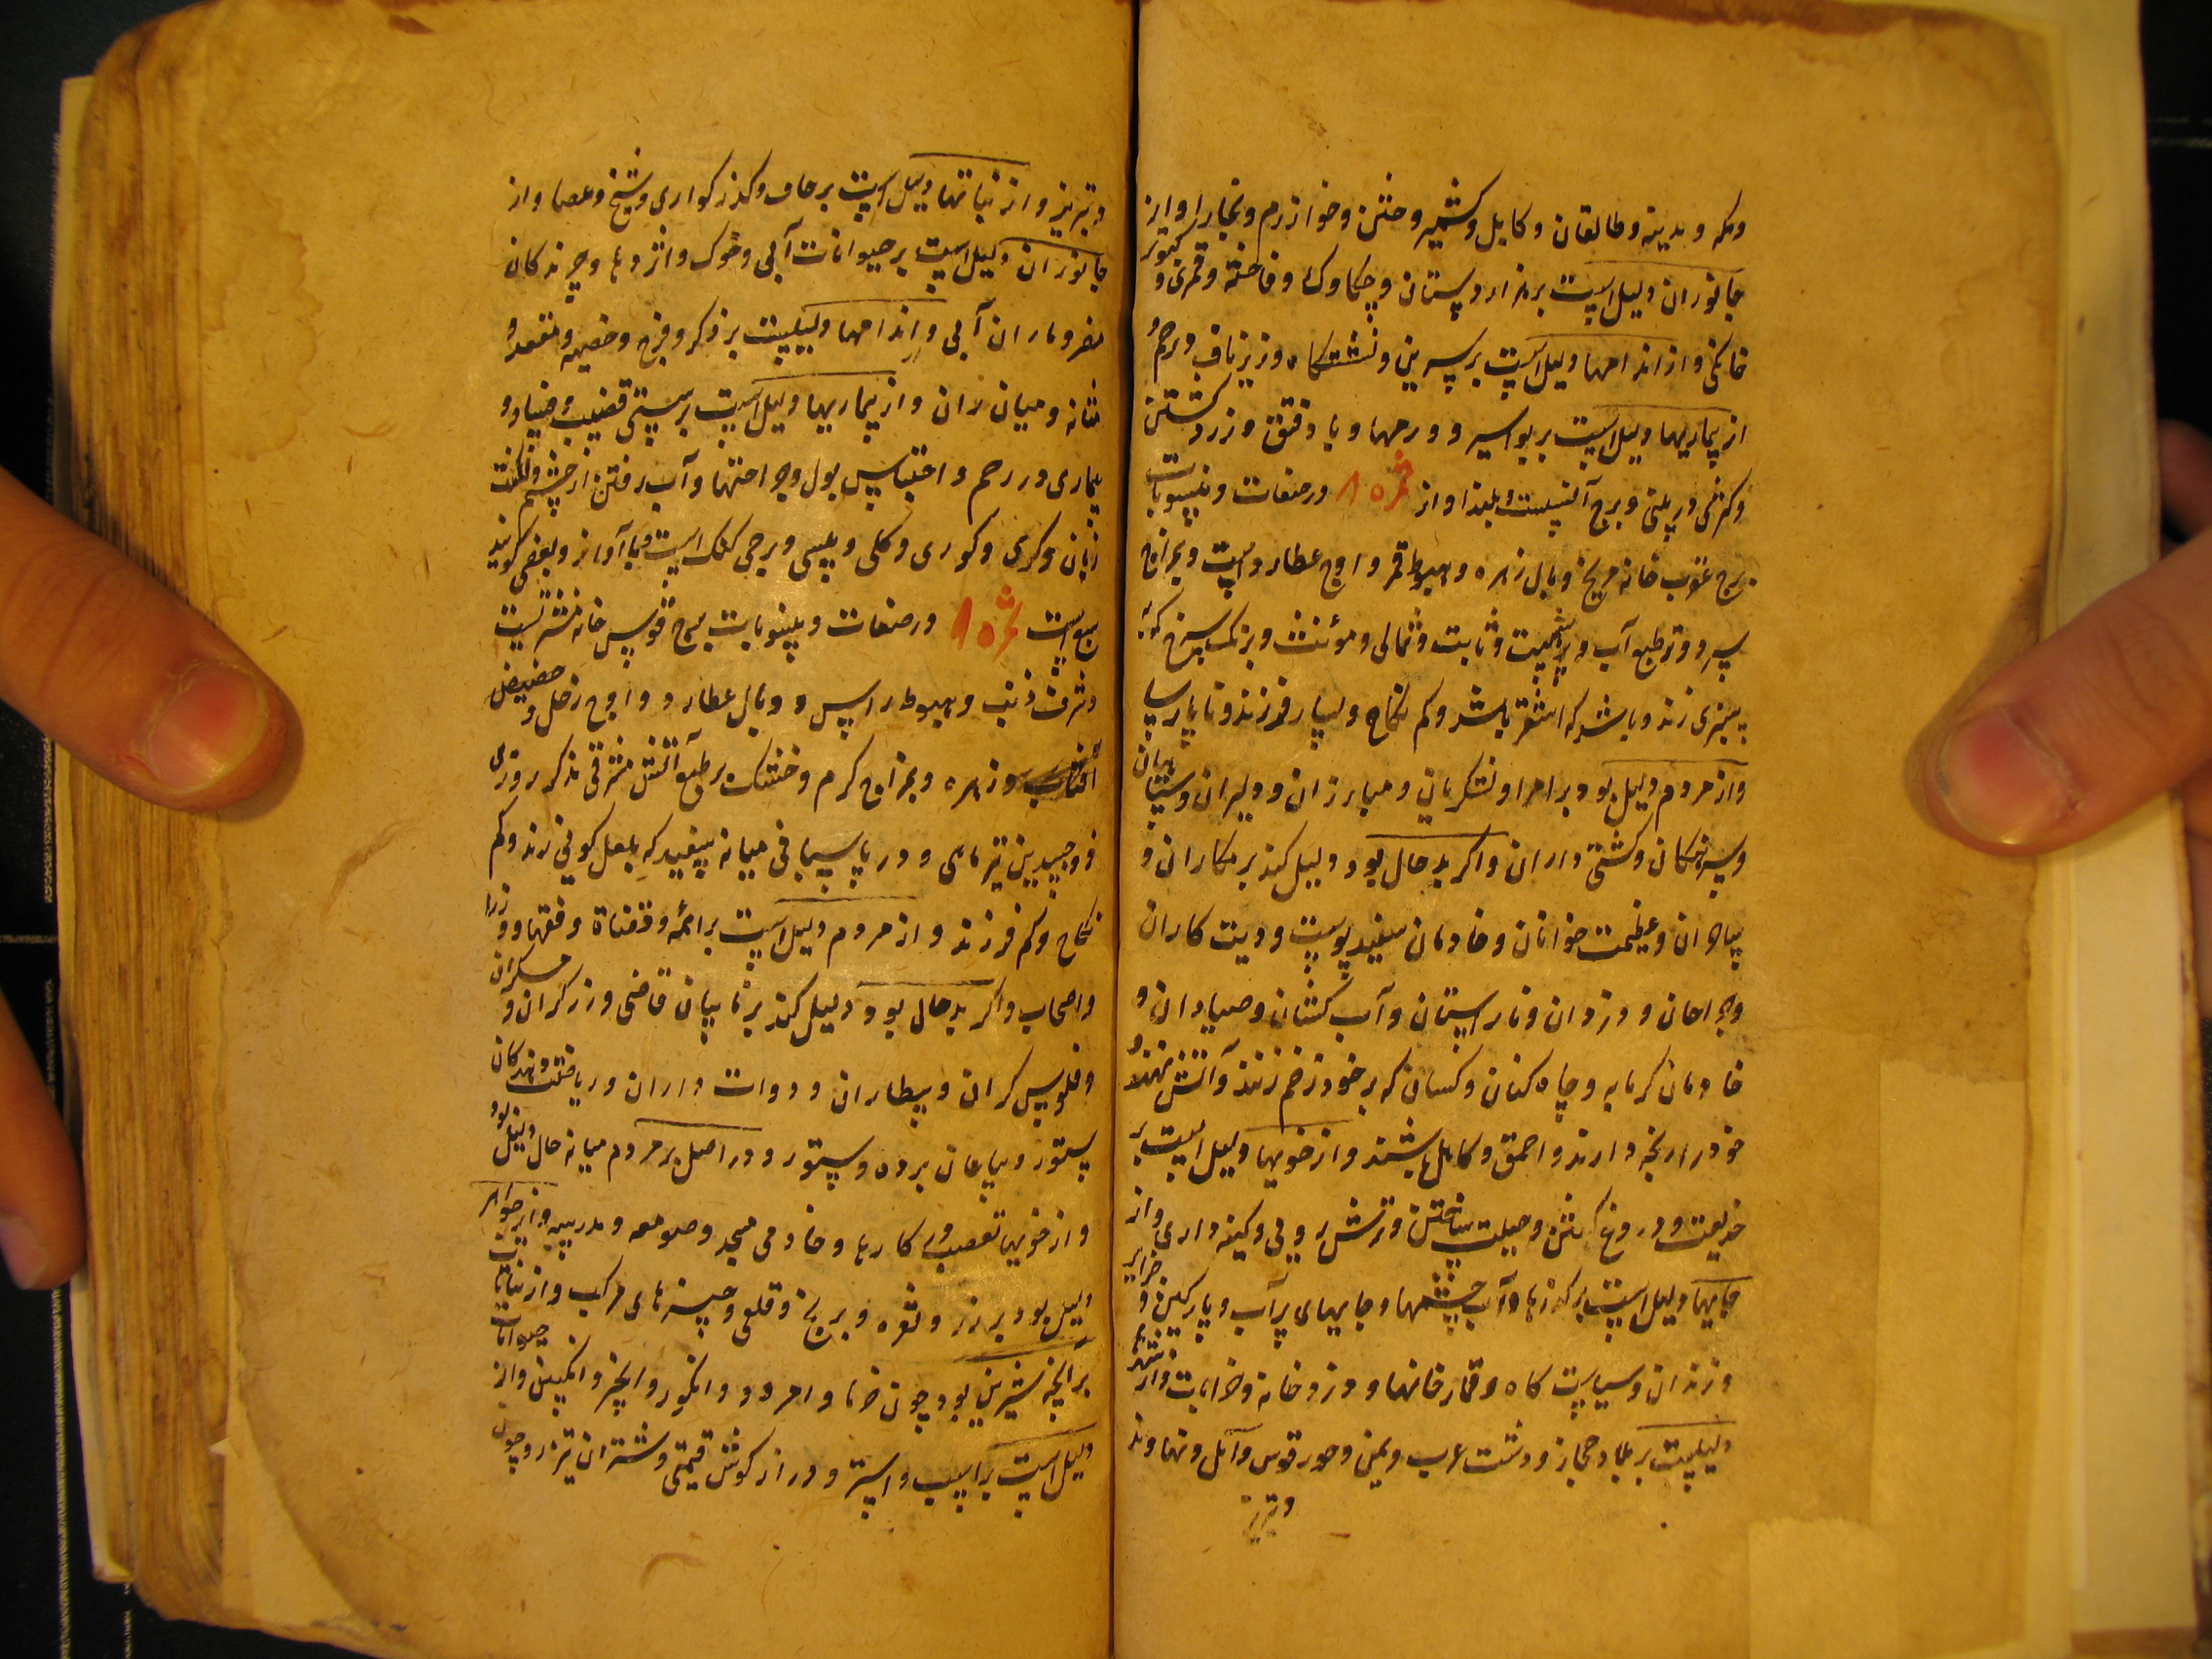 ومکه و مدینه و طالقان و کابل و کشمیر و ختن و خوارزم و بخارا و از
جانوران دلیل است بر هزار دستان و چکاوک و فاخته و قمری و کبوتر
خانکی و از اندامها دلیل است بر سرین و نشتکاه و زیر ناف و رحم و
از بیماریها دلیل است بر بواسیر و ورمها و باد فتق و زرد کشتن
و کژی در بینی و برج آلتیست بلند اواز ثمره ۸ در صفات و منسوبات
برج عقرب خانه مریخ و وبال زهره و هبوط قمر و اوج عطارد است و بمزاج
سرد و تر طبع آب و ثابت و شمالی و مؤنث و برنک سرخ که
بسبزی زند و باشد که اشقر باشد و کم نکاح و بسیار فرزند و ناپارسا
و از مردم دلیل بود بر امرا و لشکریان و مبارزان و دلیران و سپاهیان
و سرهنکان و کشتی داران و اکر بد حال بود دلیل کند بر مکاران و
ساحران و عزیمت خوانان و خادمان سفید پوست و کاران
و جراحان و دزدان و ناراستان و آب کشان و صیادان و
خادمان کرمابه و چاه کنان و کسانی که بر خود زخم زنند و آتش نهند و
خود را رنجه دارند و احمق و کاهل باشند و از خویها دلیل است بر
خدیعت و دروغ و حیلت ساختن و ترش رویی و کینه داری و از
جایها دلیل است بر و آب چشمها و جایهای پر آب و پارکین و جزایر
و زندان و سیاست کاه و قمارخانها و دزدخانه و خرابات و از شهرها
دلیلست بر حجاز و دشت عرب و یمن و و آمل و نهاوند
و تبریز
و تبریز و از نباتها دلیل است بر و و شیخ و عصا و از
جانوران دلیل است بر حیوانات آبی و خوک و اژدها و چرندکان
مضر و ماران آبی و اندامها دلیلست بر ذکر و فرج و خصیه و مقعد و
مثانه و میان ران و از بیماریها دلیل است بر سستی قضیب و
بیماری در رحم و احتباس بول و جراحتها و آب رفتن از چشم و لکنت
زبان و کری و کوری و کلی و پیسی و برجی کنک است و بی آواز و بعضی کویند
سبع است ثمره ۸ در صفات و منسوبات برج قوس خانه مشتریست
و شرف ذنب و هبوط راس و وبال عطارد و اوج زحل و حضیض
و زهره و بمزاج کرم و خشک بر طبع آتش مشرقی مذکر روزی
ذو جسدین تیر ماهی و در پاسبانی میانه سفید که بلعل کونی زند و کم
نکاح و کم فرزند و از مردم دلیل است بر ائمه و قضاة و فقها و وزرا
و اصحاب و اکر بد حال بود دلیل کند بر نایبان قاضی و زرکران و مسکران
و فلوس کران و بیطاران و دوات داران و ریاضت دهندکان
ستور و بیاعان برده و ستور و در اصل بر مردم میانه حال دلیل بود
و از خویها تعصب کارها و خادمی مسجد و صومعه و مدرسه و از جواهر
دلیل بود بر زر و نقره و برنج و قلعی و چیزهای مرکب و از نباتات
بر آنچه شیرین بود چون خرما و امرود و انکور و انجیر و انکبین و از حیوانات
دلیل است بر اسب و استر و دراز کوش قیمتی و شتران تیزرو چون